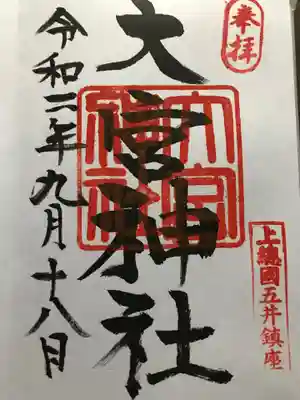 奉拝
上總國五井鎮座
大宮神社
令和二年九月十八日